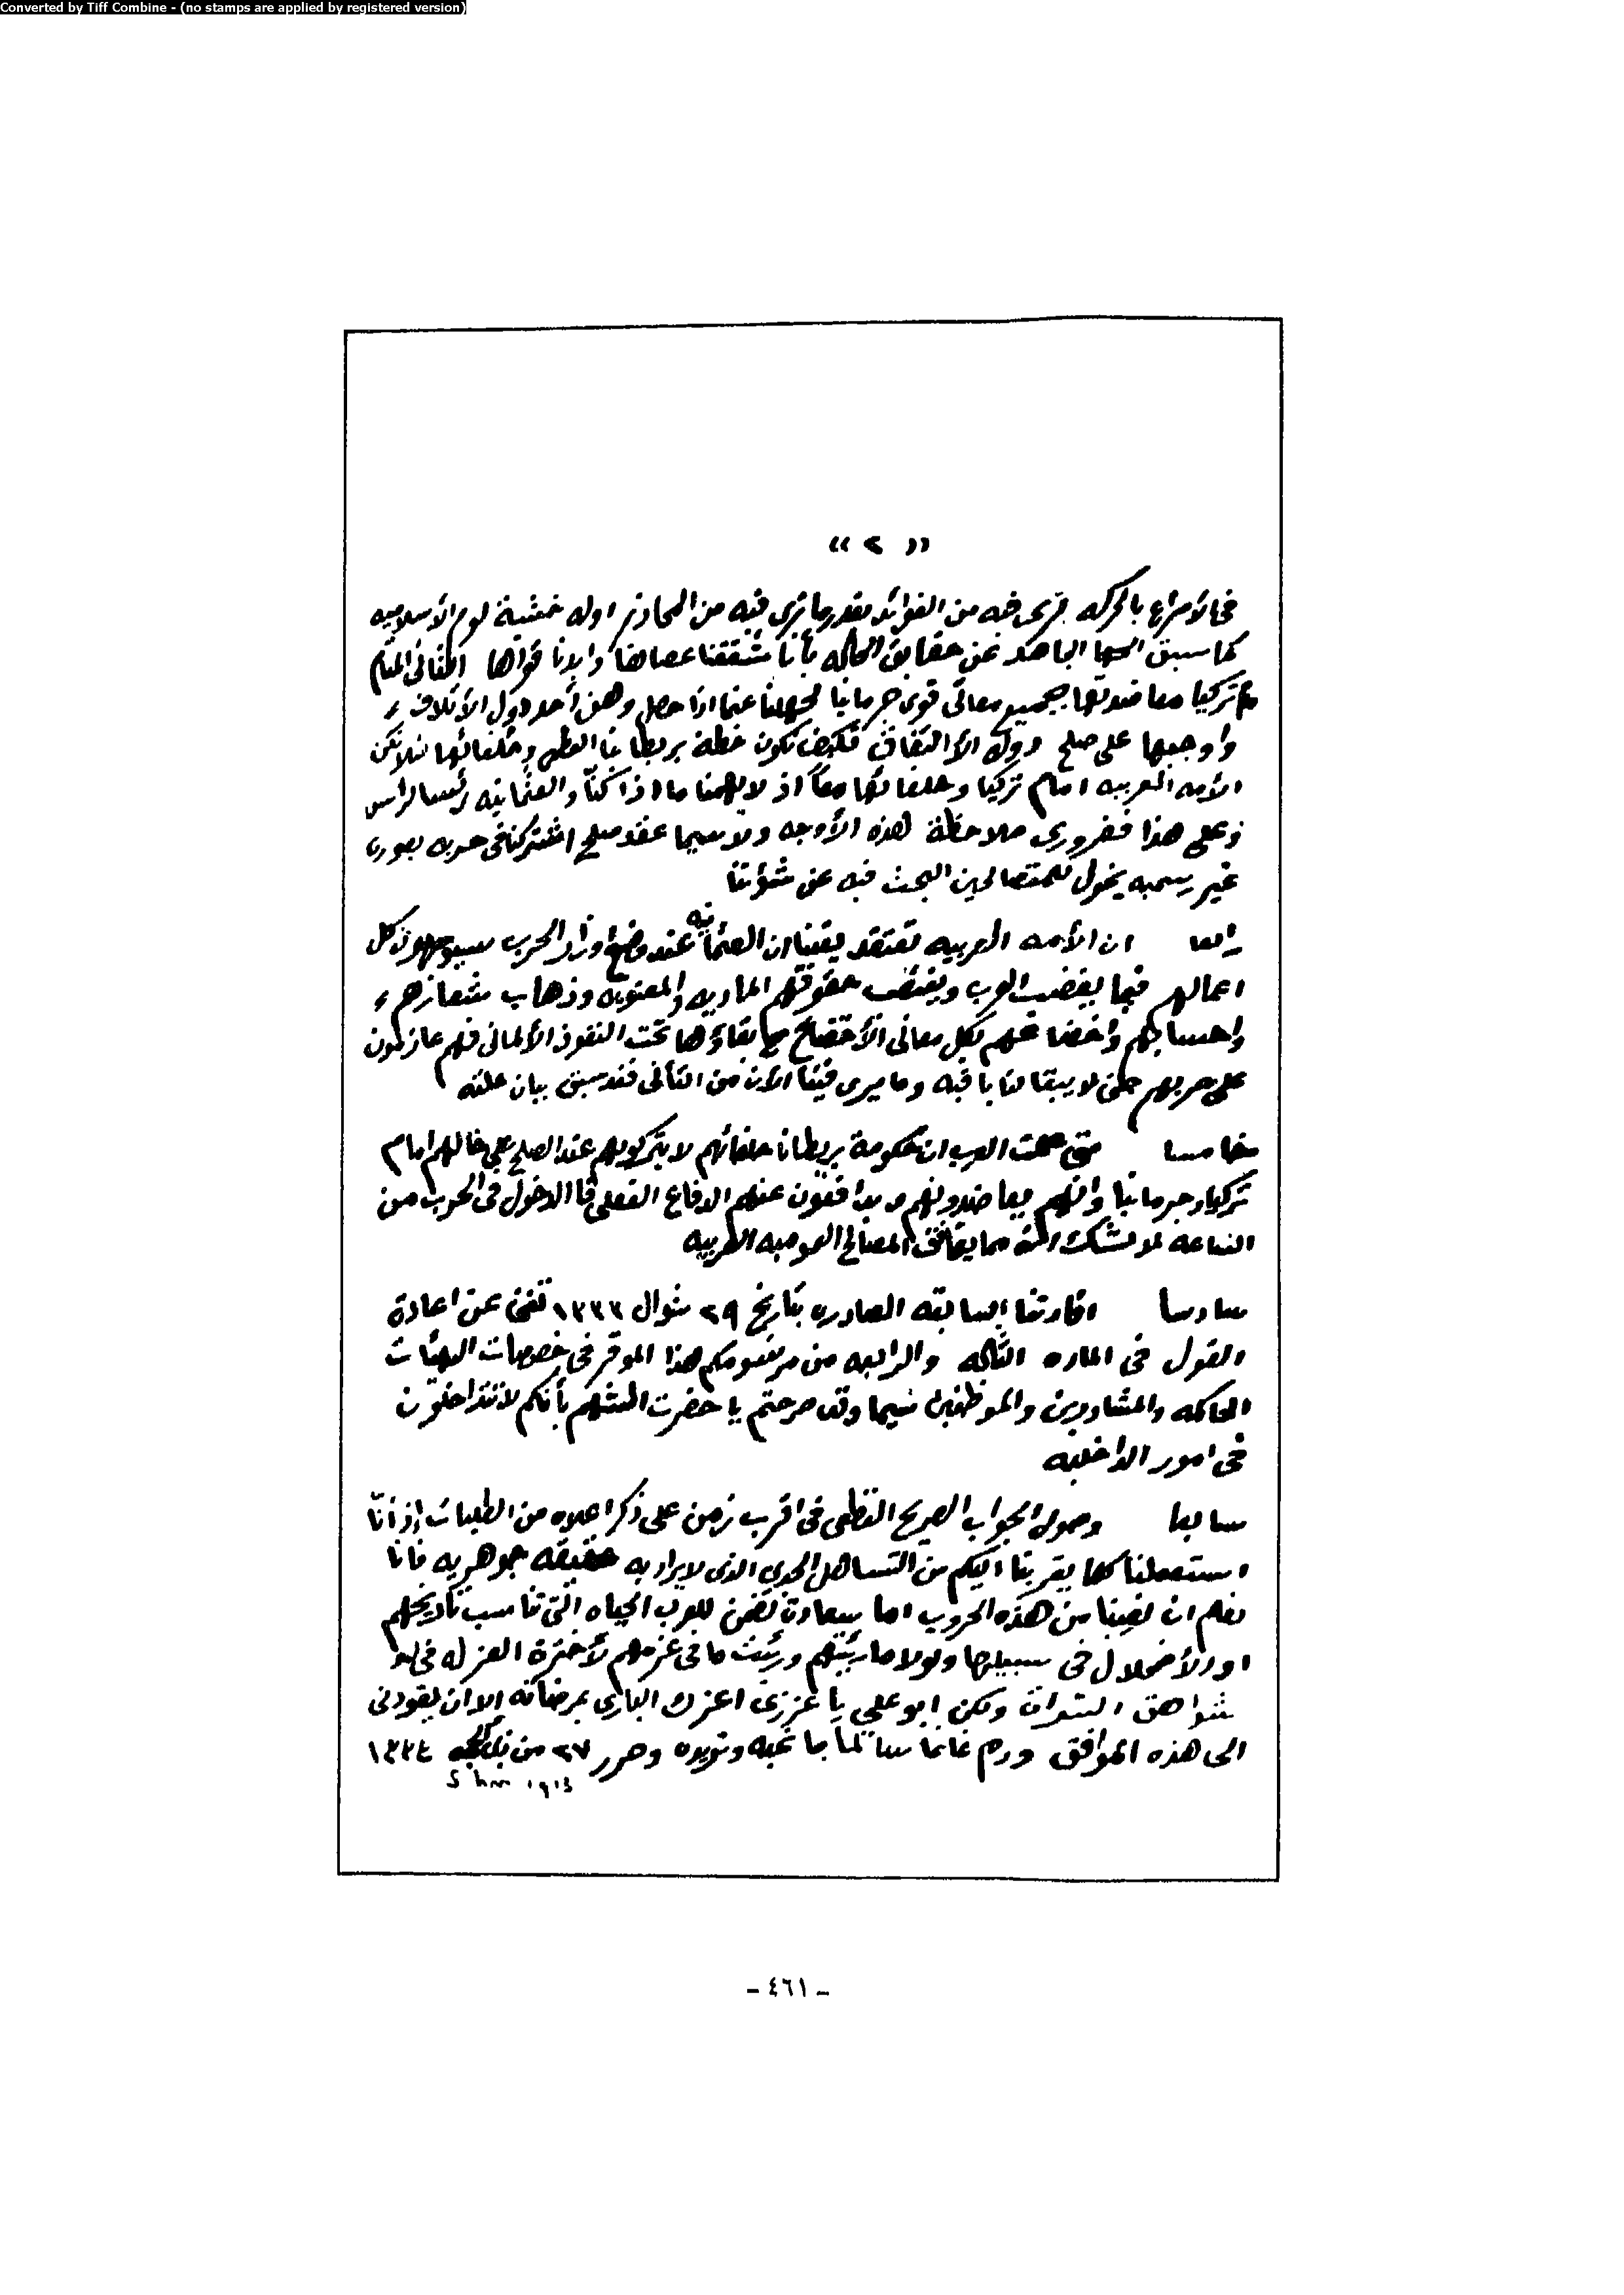 Converted by Tiff Combine - (no stamps are applied by registered version)
« ٢ »
فى الأسراع بالحركه نرى فيه من الفوائد بقدر ما نرى فيه من المحاذر اوله خشية لوم الأسلاميه
كما سبق عن حقايق الحاله بأنا شققنا عصاها وابدنا قواها الثانى المقام
مع تركيا معاضدتها بجميع معانى قوى جرمانيا لجهلنا عما اذا حصل وهن أحد دول الأئتلاف
وأوجبها على صلح دول الأتفاق فكيف تكون خطة بريطانيا العظمى وحلفائها لئلا تكن
الأمه العربيه امام تركيا وحلفائها معاً اذ لا يهمنا ما اذا كنّا والعثمانيه رئسا لراس
وعلى هذا فضرورى ملاحظة لهذه الأوجه ولاسيما عقد صلح اشتركنا فى حربه بصوره
غير رسميه يخول للمتصالحين البحث فيه عن شؤننا
رابعا ان الأمه العربيه تعتقد يقينا ان العثمانيه عند وضع اوزار الحرب سيوجهون كل
اعمالهم فيما يغضب العرب ويغتصب حقوقهم الماديه والمعنويه وذهاب شعارهم
واحسابهم واخضاعهم بكل معانى الأخضاع مع بقاؤها تحت النفوذ الألمانى فهم عازمون
على حربهم حتى لا يبقا لنا باقيه وما يرى فينا الأن من التأنى فقد سبق بيان علته
خامسا متى علمت العرب ان حكومة بريطانا حلفائهم لا يتركوهم عند الصلح على حالهم امام
تركيا وجرمانيا وانهم يعاضدونهم ويدافعون عنهم الدفاع الفعلى فا الدخول فى الحرب من
الساعه لا شك انه مما يوافق المصالح العموميه العربيه
سادسا افادتنا السابقه الصادره بتاريخ ٢٩ شوال ١٣٣٣ تغنى عن اعادة
القول فى الماده الثالثه والرابعه من مرسومكم هذا الموقر فى خصوصات الهيئات
الحاكمه والمشاورين والموظفين سيما وقد صرحتم يا حضرت الشهم بأنكم لا تتداخلون
فى امور الداخليه
سابعا وصول الجواب الصريح القطعى فى اقرب زمن على ذكر اعلاه من الطلبات إذ أنّا
استعملنا كلما يقربنا اليكم من التساهل الجدى الذى لا يراد به حقيقه جوهريه فانا
نعلم ان نصيبنا من هذه الحروب اما سعادة تضمن للعرب الحياه التى تناسب تاريخهم
او الأضمحلال فى سبيلها ولولا ما رئيتهم ورئيت ما فى عزمهم لأخترة العزله فى
شواهق ولكن ابو على يا عزيزى اعزك البارى بمرضاته الا ان يقودنى
الى هذه المواقف ودم غانما سالما بما تحبه وتوده وحرر ٢٧ من ذى الحجه ١٣٣٤
- ٤٦١ -